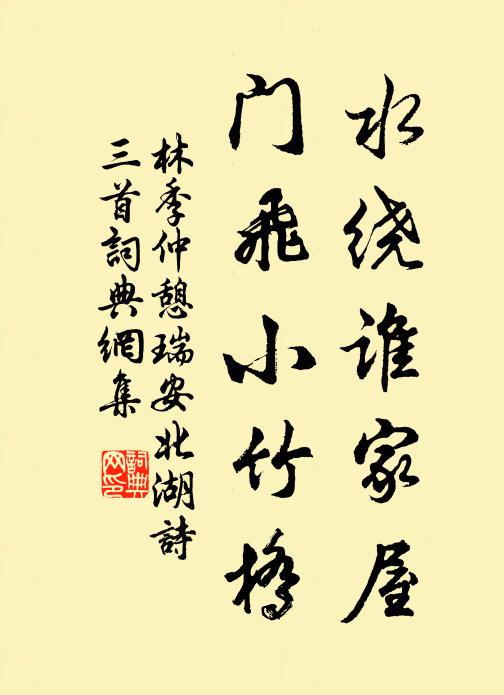 水绕谁家屋
门飛小竹橋
林季仲憩瑞安北湖詩
三首詞典網集
詞典
网印